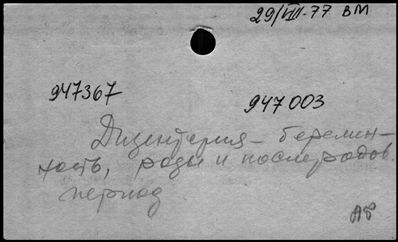 29/VIII-77 ВМ
947367 947003
Дизентерия - беремен-
ность, роды и послеродов.
период
АВ